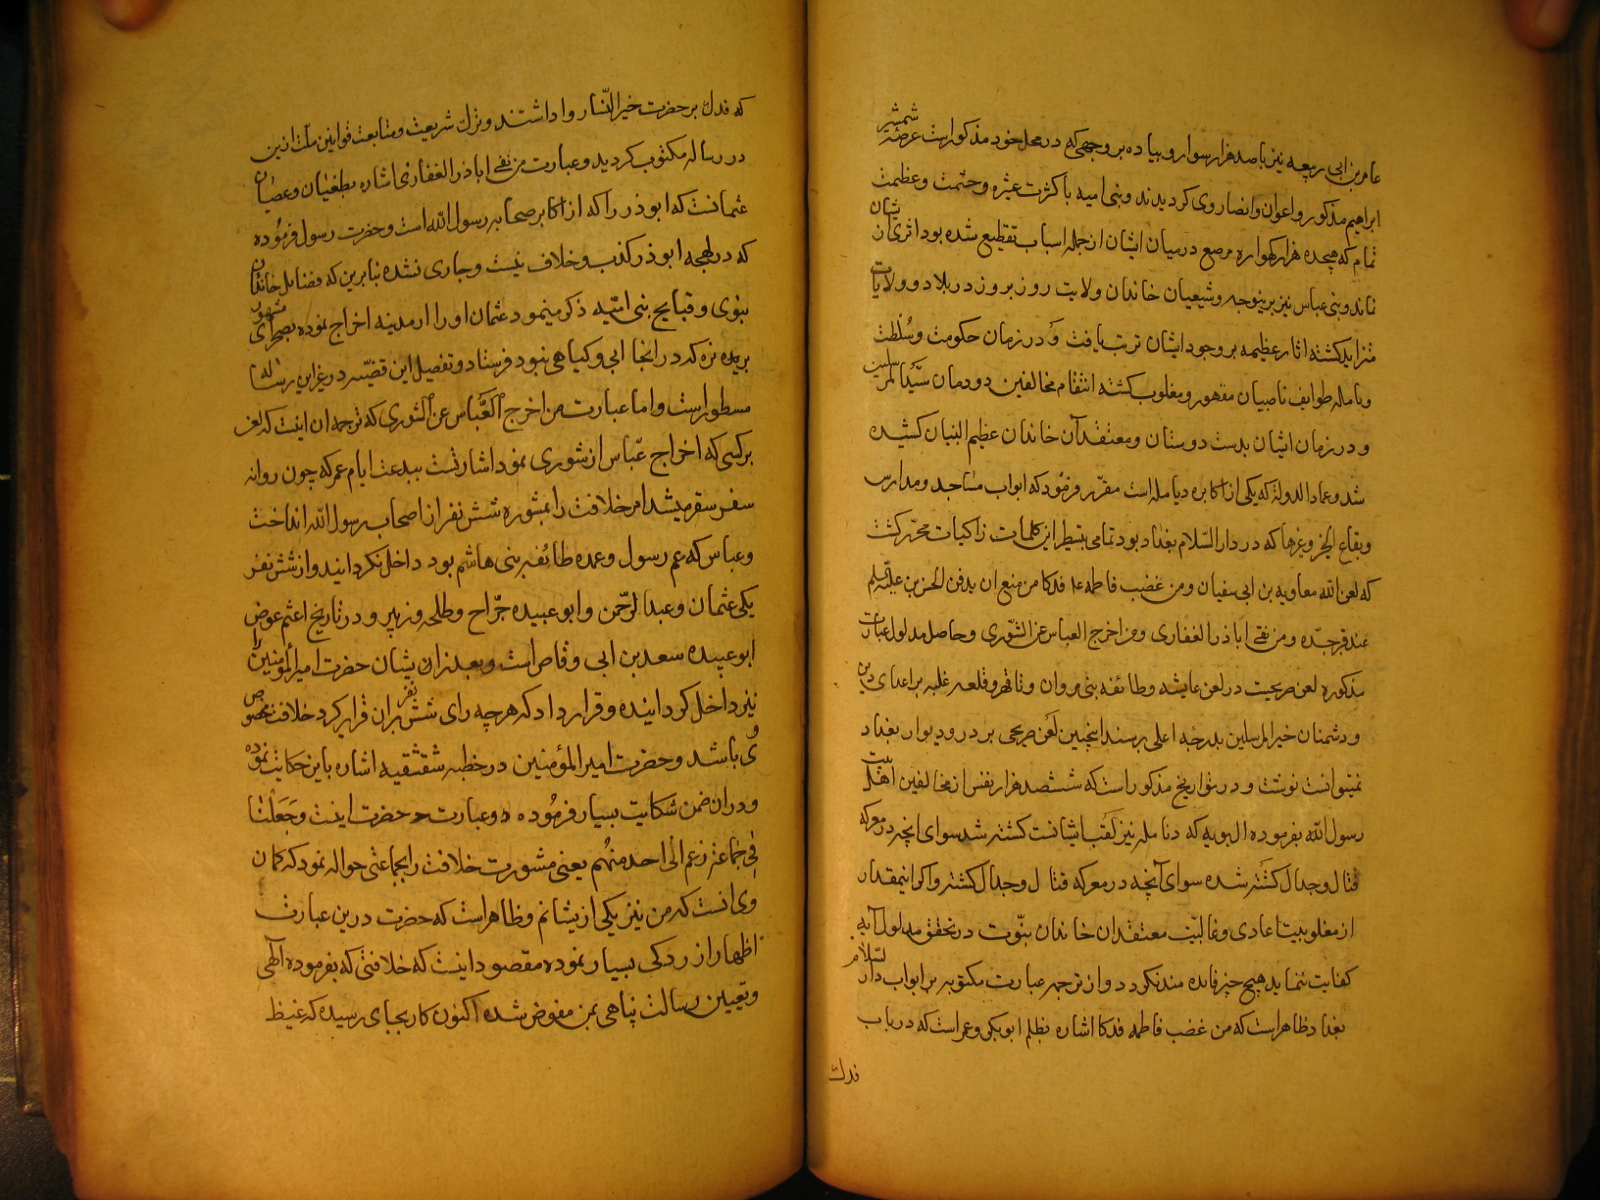 عامر بن ابی ربیعه نیز با صد هزار سوار و پیاده بر وجهی که در محل خود مذکور است عرضهٔ شمشیر
ابراهیم مذکور و اعوان و انصار وی کردیدند و بنی امیه با کثرت عشره و حشمت و عظمت
تمام که هیجده هزار کهواره مرصع در میان ایشان از جمله اسباب تقطیع شده بود اثری از ایشان
نماند و بنی عباس نیز برینوجه و شیعیان خاندان ولایت روز بروز در بلاد و ولایات
متزاید کشته اثار عظیمه بر وجود ایشان ترتب یافت و در زمان حکومت و سلطنت
دیامله طوایف ناصبیان مقهور و مغلوب کشته انتقام مخالفین دودمان سید المرسلین
و در زمان ایشان بدست دوستان و معتقدان خاندان عظیم البنیان کشیده
شد و عماد الدوله که یکی از اکابر دیامله است مقرر فرمود که ابواب مساجد و مدارس
و بقاع الخیر و غیرها که در دار السلام بغداد بود تمامی بتسطیر این کلمات زاکیات محرر کشت
که لعن الله معاویه بن ابی سفیان و من غضب فاطمه ع فدکا من منع ان یدفن الحسن بن علی
عند قبر جده و من نفی اباذر الغفاری و من اخرج العباس عن الشوری و حاصل مدلول عبارت
مذکوره لعن صریحیت در لعن عایشه و طایفه بنی مروان و تا قهر و قلعه غلبه بر اعدای دین
و دشمنان خیر المرسلین بدرجه اعلی رسند اینچنین لعن صریحی بر در و دیوار بغداد
نمیتوانست نوشت و در تواریخ مذکور است که ششصد هزار نفس از مخالفین اهل بیت
رسول الله بفرموده ال بویه که دیامله نیز لقب ایشانست کشته شد سوای انچه در معرکه
قتال و جدال کشته شده سوای آنچه در معرکه قتال و جدال کشته و اکر اینمقدار
از مغلوبیت اعادی و غالبیت معتقدان خاندان نبوت در تحقق مدلول آیه
کفایت ننماید هیچ چیز فایده مند نکردد و از ترجمه عبارت مکتوبه بر ابواب دار السلام
بغداد ظاهر است که من غضب فاطمه فدکا اشاره بظلم ابوبکر و عمر است که در باب
فدک
که فدک بر حضرت خیر النسا روا داشتند و ترک شریعت و متابعت قوانین ملت ازین
در رساله مکتوب کردید و عبارت من نفی اباذر الغفاری اشاره بطغیان و عصیان
عثمانست که ابوذر را که از اکابر صحابه رسول الله است و حضرت رسول فرموده
که در لهجه ابوذر کذب و خلاف نیست و جاری نشده بنابرین که فضایل خاندان
نبوی و قبایح بنی امیه ذکر مینمود عثمان او را از مدینه اخراج نموده بصحرای مشهور
بربذه نزه که در انجا ابی و کیاهی نبود فرستاد و تفصیل این قضیه در غیر این رساله
مسطور است و اما عبارت من اخرج العباس عن الثوری که ترجمه ان اینست که لعن
بر کسی که اخراج عباس از شوری نمود اشارتست ببدعت ایام عمر که چون روانه
سفر سقر میشد امر خلافت را بمشوره شش نفر از اصحاب رسول الله انداخت
و عباس که عم رسول و عمده طایفه بنی هاشم بود داخل نکردانید و از شش نفر
یکی عثمان و عبد الرحمن و ابو عبیده جراح و طلحه و زبیر و در تاریخ اعثم عوض
ابو عبیده سعد بن ابی وقاص است و بعد زان یشان حضرت امیر المؤمنین را
نیز داخل کردانیده و قرار داد که هر چه رای شش نفر بران قرار کرد خلافت مخصوص
وی باشد و حضرت امیر المؤمنین در خطبه شقشقیه اشاره باین حکایت نموده
و در ان ضمن شکایت بسیار فرموده و عبارت حضرت اینست و جعلنا
فی جماعة زعم انی احد منهم یعنی مشورت خلافت را بجماعتی حواله نمود که کمان
وی انست که من نیز یکی از یشانم و ظاهر است که حضرت درین عبارت
اظهار ازردکی بسیار نموده مقصود اینست که خلافتی که بفرموده الهی
و تعیین رسالت پناهی بمن مفوض شده اکنون کار بجای رسیده که غیظ